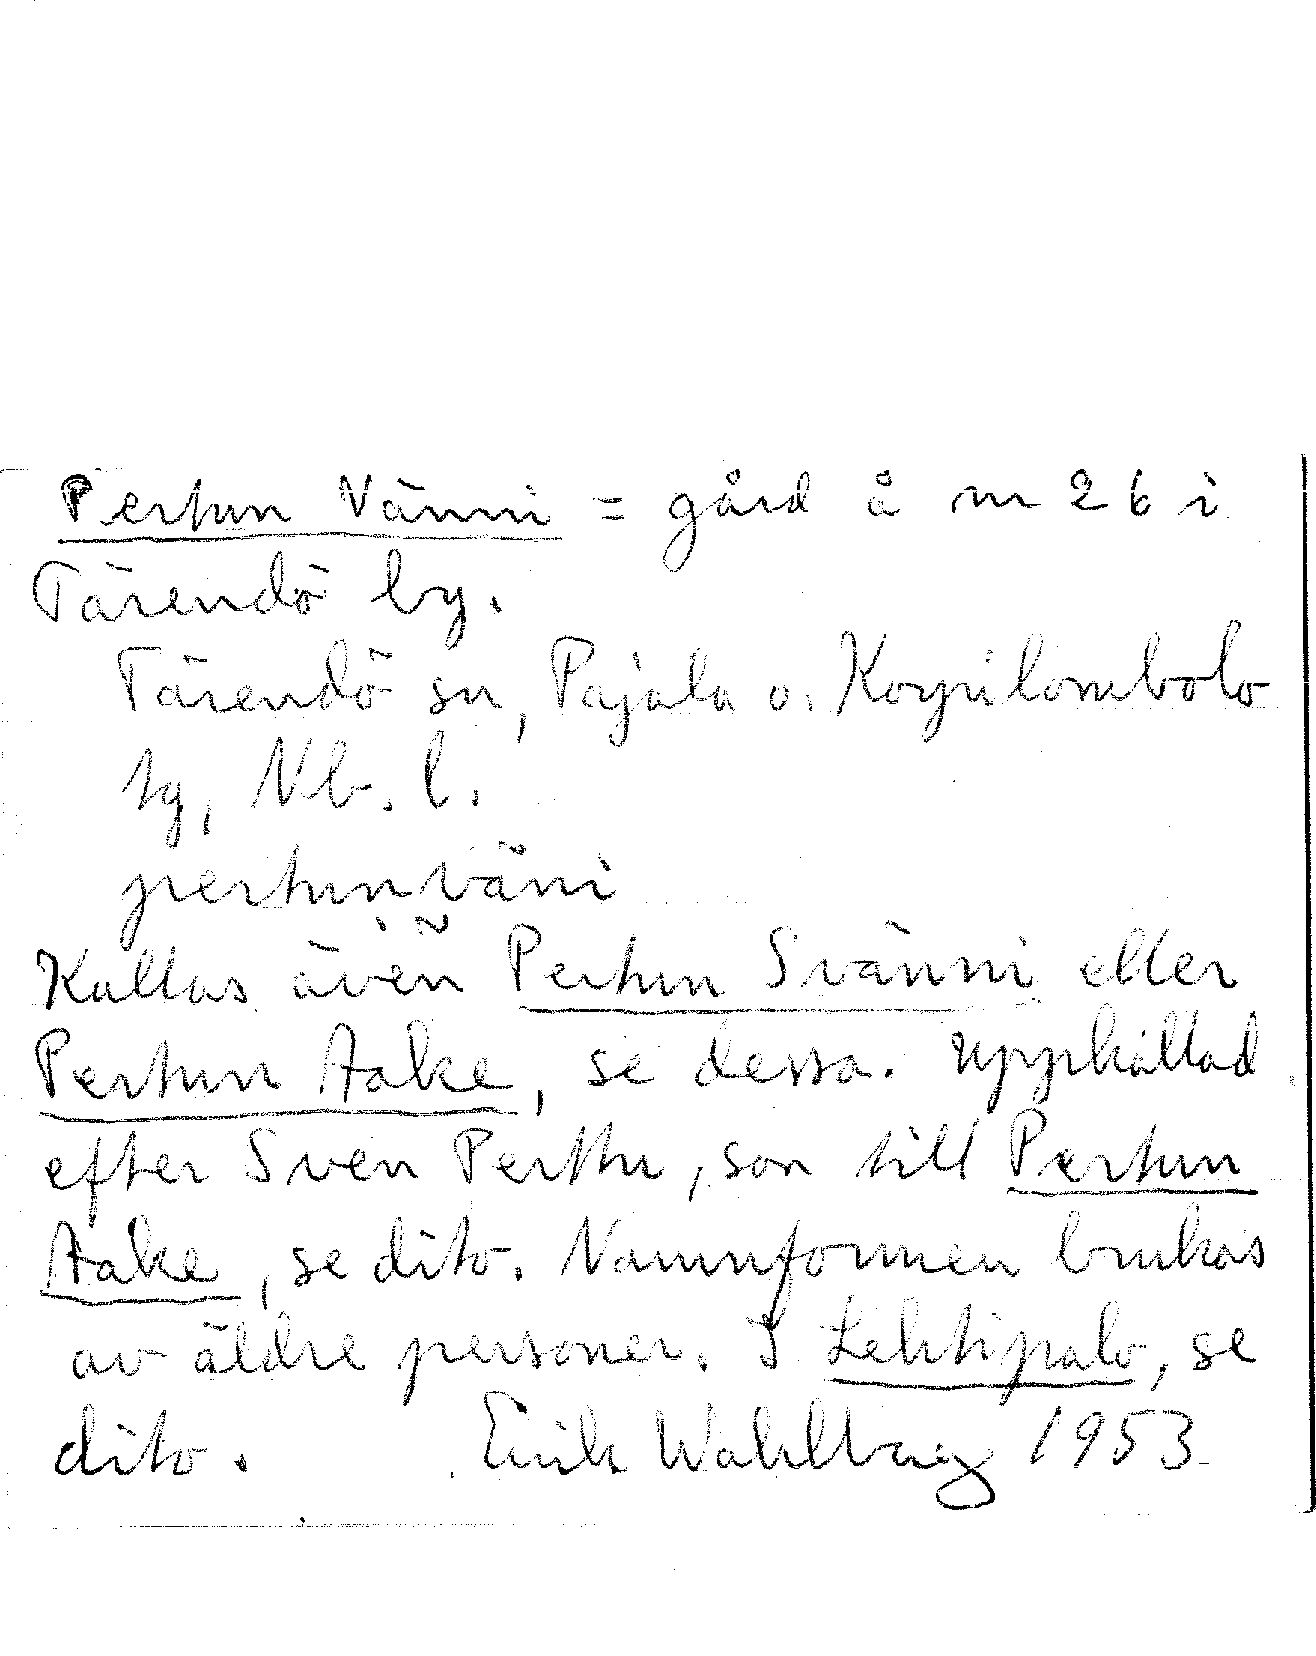 Pertun Vänni = gård å nr 26 i
Tärendö by.
Tärendö sn, Pajala o. Korpilombolo
tg, Nb. l.
pertunväni
Kallas även Pertun Svänni eller
Pertun Aake, se dessa. Uppkallad
efter Sven Perttu, son till Pertun
Aake, se dito. Namnformen brukas
av äldre personer. I Lehtipalo, se
dito. Erik Wahlberg 1953